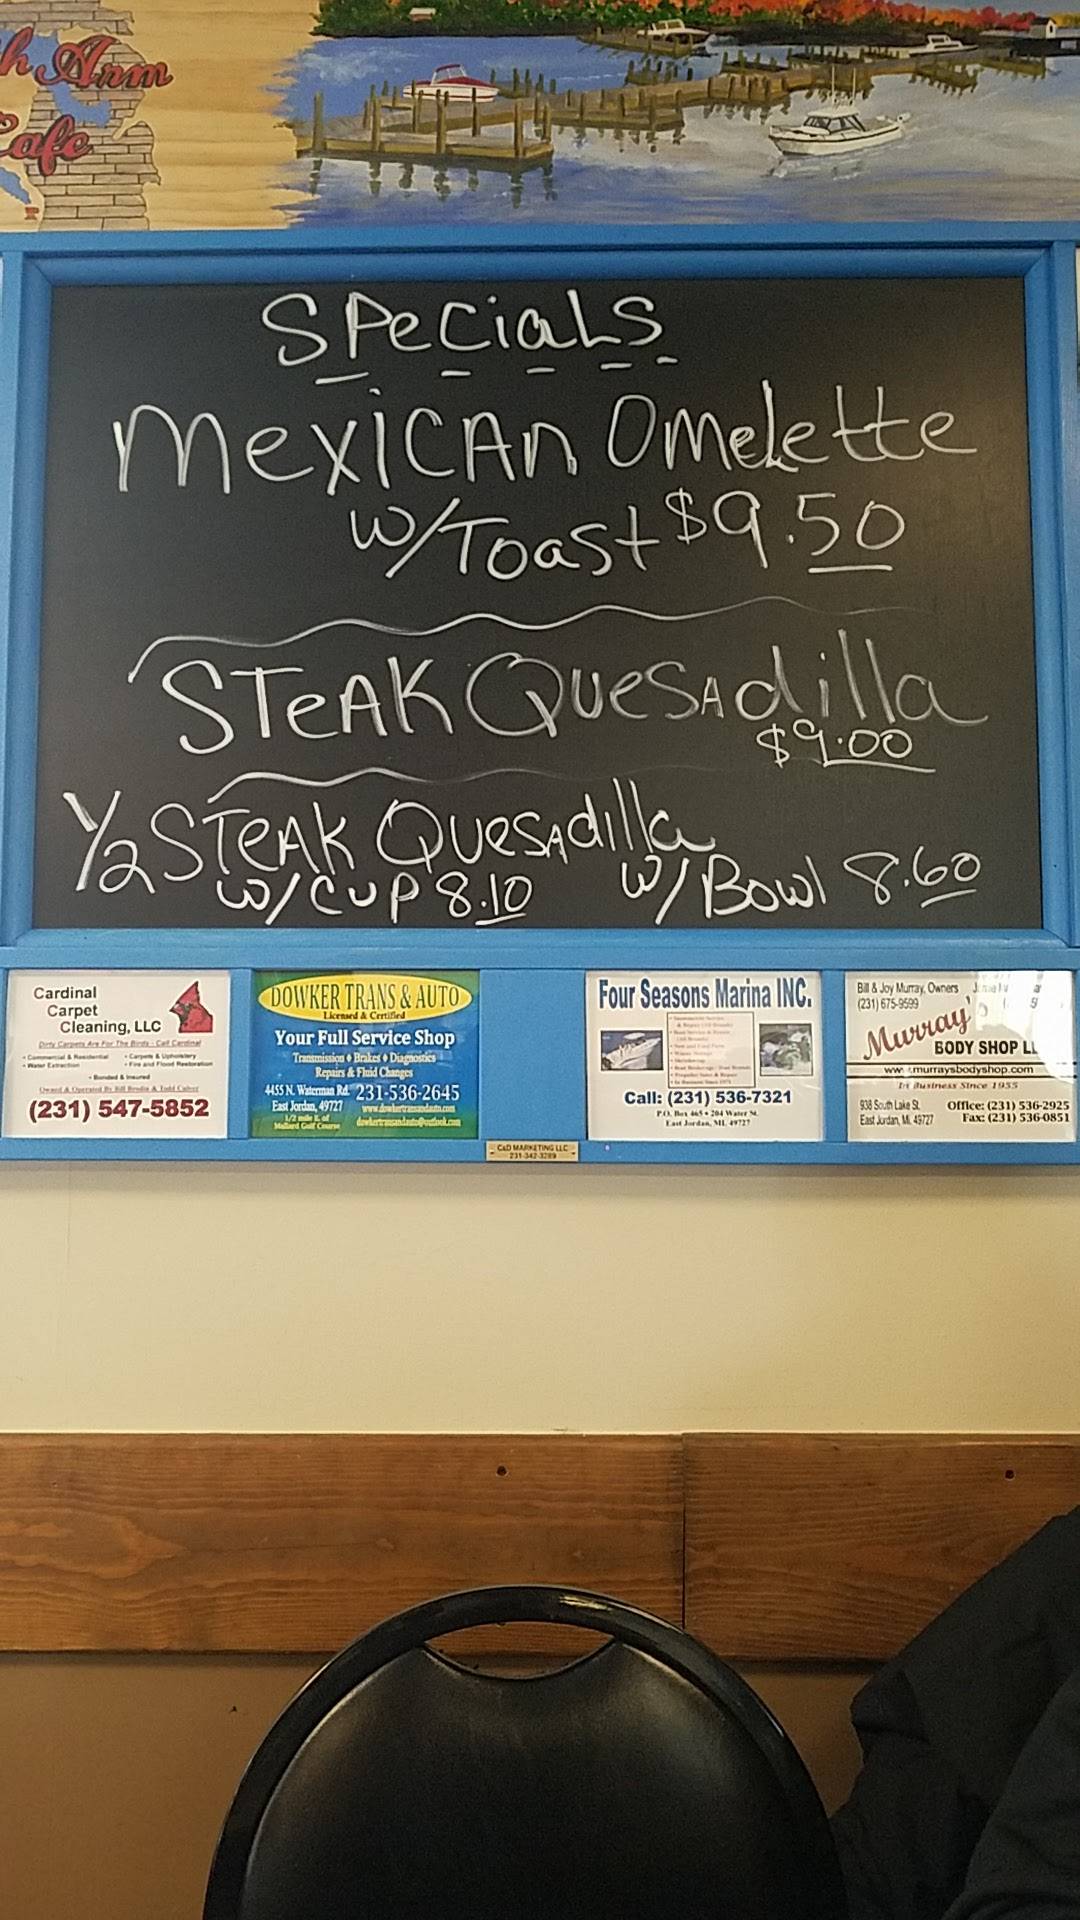 h Arm
Cafe
Specials
Mexican Omelette
w/Toast $9.50
Steak Quesadilla
$9.00
1/2 Steak Quesadilla
w/Cup 8.10 w/Bowl 8.60
Cardinal
Carpet
Cleaning, LLC
Dirty Carpets Are For The Birds - Call Cardinal
• Commercial & Residential • Carpets & Upholstery
• Water Extraction • Fire and Flood Restoration
• Bonded & Insured
Owned & Operated By Bill Brodin & Todd Culver
(231) 547-5852
DOWKER TRANS & AUTO
Licensed & Certified
Your Full Service Shop
Transmission ♦ Brakes ♦ Diagnostics
Repairs & Fluid Changes
4455 N. Waterman Rd. 231-536-2645
East Jordan, 49727 www.dowkertransandauto.com
1/2 mile E. of
Mallard Golf Course dowkertransandauto@outlook.com
Four Seasons Marina INC.
Call: (231) 536-7321
P.O. Box 465 • 204 Water St.
East Jordan, MI. 49727
Bill & Joy Murray, Owners
(231) 675-9599
Murray's
BODY SHOP LL
www.murraysbodyshop.com
In Business Since 1955
938 South Lake St. Office: (231) 536-2925
East Jordan, MI. 49727 Fax: (231) 536-0851
C&D MARKETING LLC
231-342-3289